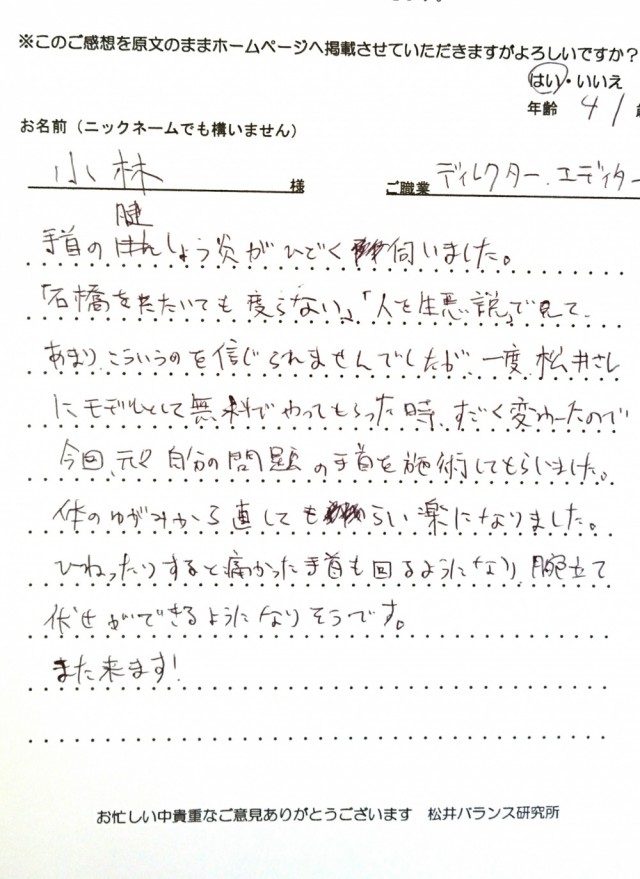 ※このご感想を原文のままホームページへ掲載させていただきますがよろしいですか?
はい・いいえ
年齢 41
お名前(ニックネームでも構いません)
小林 様 ご職業 ディレクター、エディター
腱
手首のけんしょう炎がひどく伺いました。
「石橋をたたいても渡らない」「人を性悪説」で見て、
あまりこういうのを信じられませんでしたが、一度、松井さん
にモデルとして無料でやってもらった時、すごく変わったので
今回、元々自分の問題の手首を施術してもらいました。
体のゆがみから直してもらい楽になりました。
ひねったりすると痛かった手首も回るようになり、腕立て
伏せができるようになりそうです。
また来ます!
お忙しい中貴重なご意見ありがとうございます 松井バランス研究所